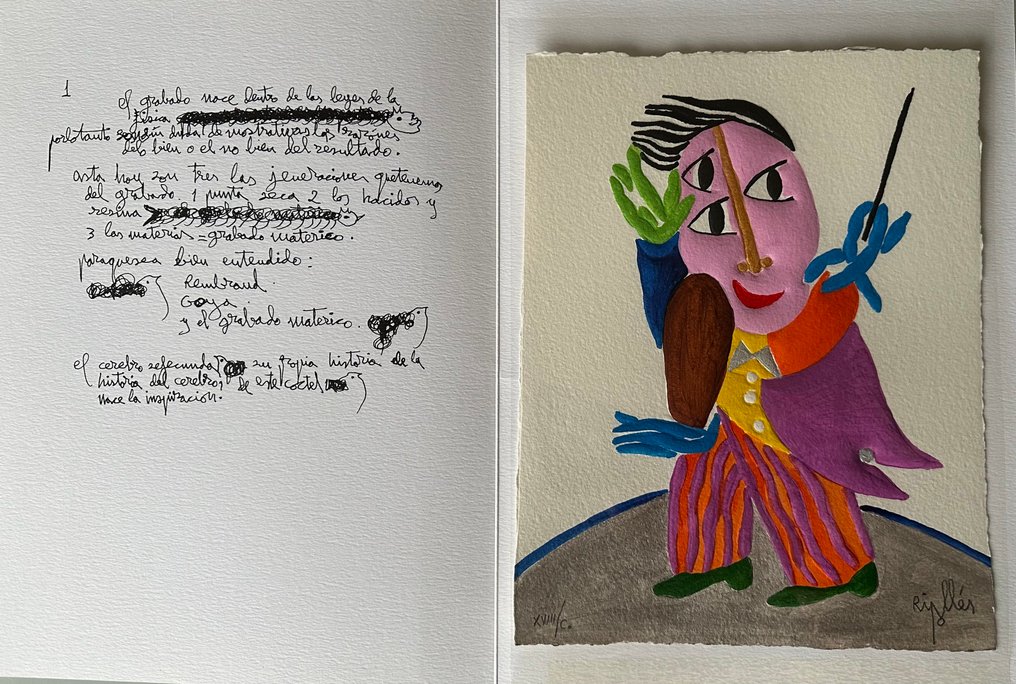 1
el grabado nace dentro de las leyes de la
fisica
porlotanto sin duda de mostrativas las razones
delo bien o el no bien del resultado.
asta hoy son tres las jeneraciones quetenemos
del grabado. 1 punta seca 2 los hacidos y
resina
3 las materias = grabado materico.
paraquesea bien entendido:
Rembrand.
Goya.
y el grabado materico.
el cerebro sefecunda su propia historia de la
historia del cerebro; de este coctel
nace la inspiracion.
XVIII/C.
Ripllés